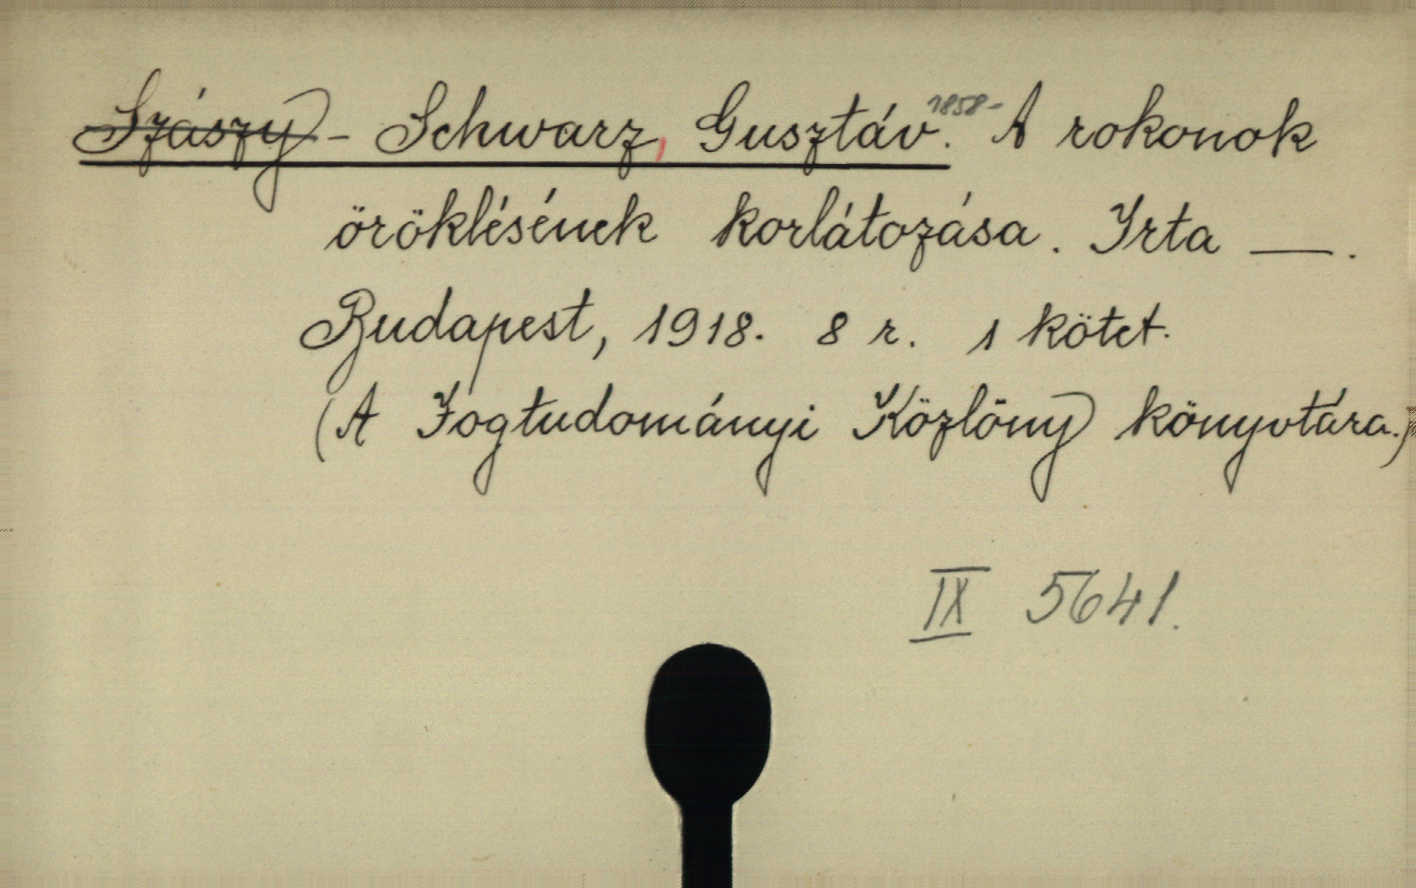 Szászy - Schwarz, Gusztáv. 1858- A rokonok
öröklésének korlátozása. Irta —.
Budapest, 1918. 8 r. 1 kötet.
(A Jogtudományi Közlöny könyvtára.)
IX 5641.